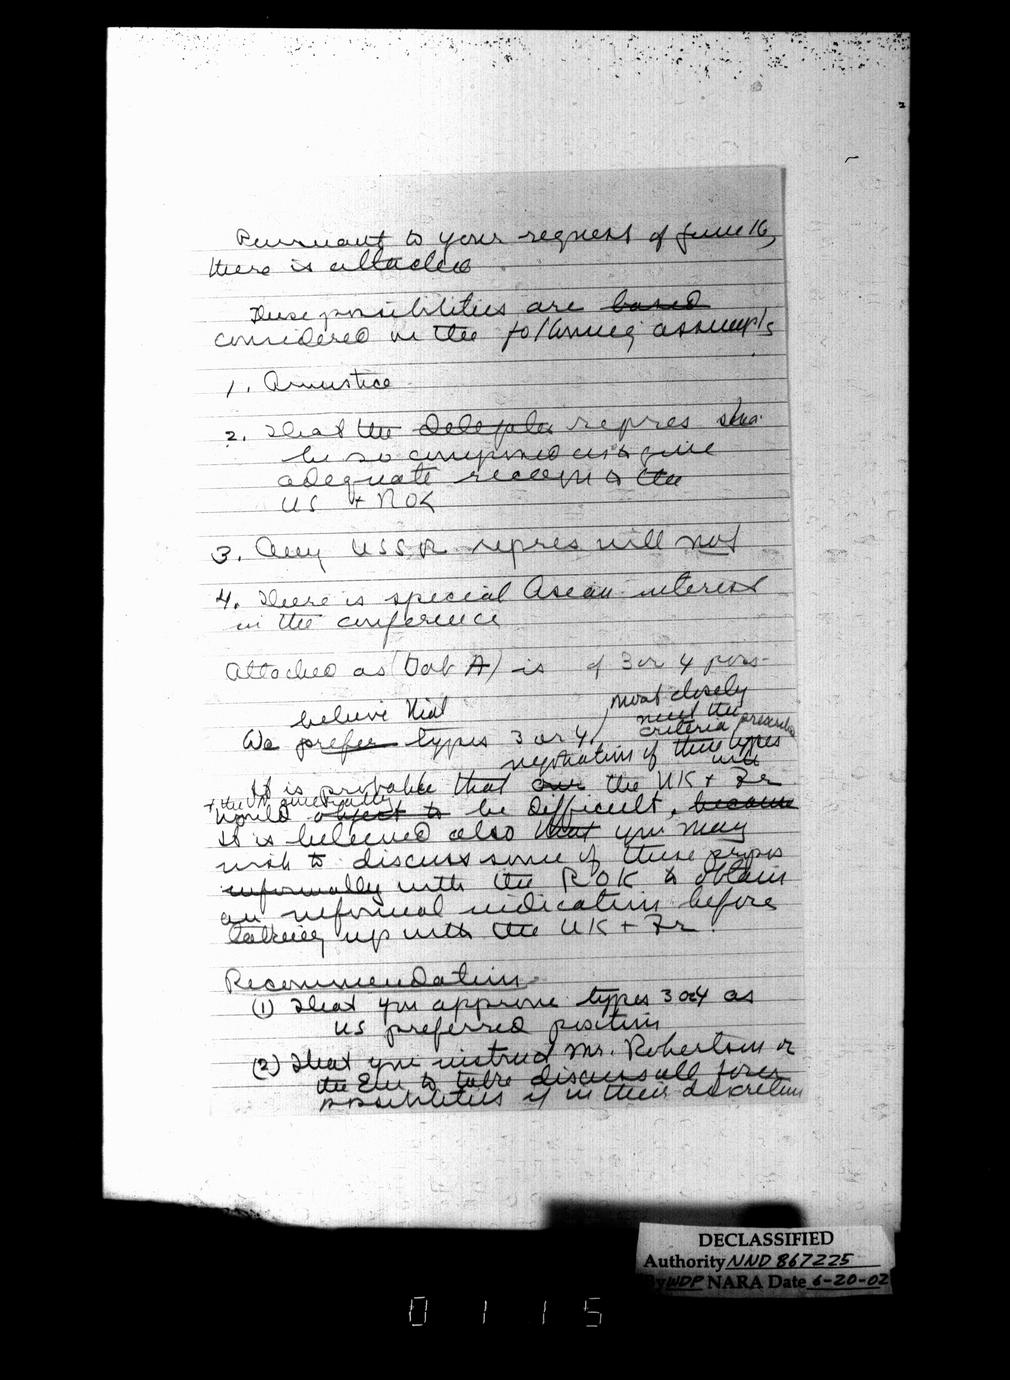 Pursuant to your request of June 16,
there is attached
These possibilities are based
considered on the following assumpts
1. Armistice
2. That the repres
be so composed as to give
adequate recogn to the
US + ROK
3. Any USSR repres will not
4. There is special Asean interest
in the conference
Attached as (Tab A) is of 3 or 4 poss-
believe that most closely
meet the
criteria
We prefer types 3 or 4
negotiation of these types
with
It is probable that our the UK + Fr
+ the UN
would object to be difficult, because
It is believed also that you may
wish to discuss some of these
informally with the ROK to obtain
an informal indication before
taking up with the UK + Fr.
Recommendation
(1) That you approve types 3 or 4 as
US preferred position
(2) That you instruct Mr. Robertson or
the to take discuss all
possibilities if in their discretion
DECLASSIFIED
Authority NND 867225
By WDP NARA Date 6-20-02
0115